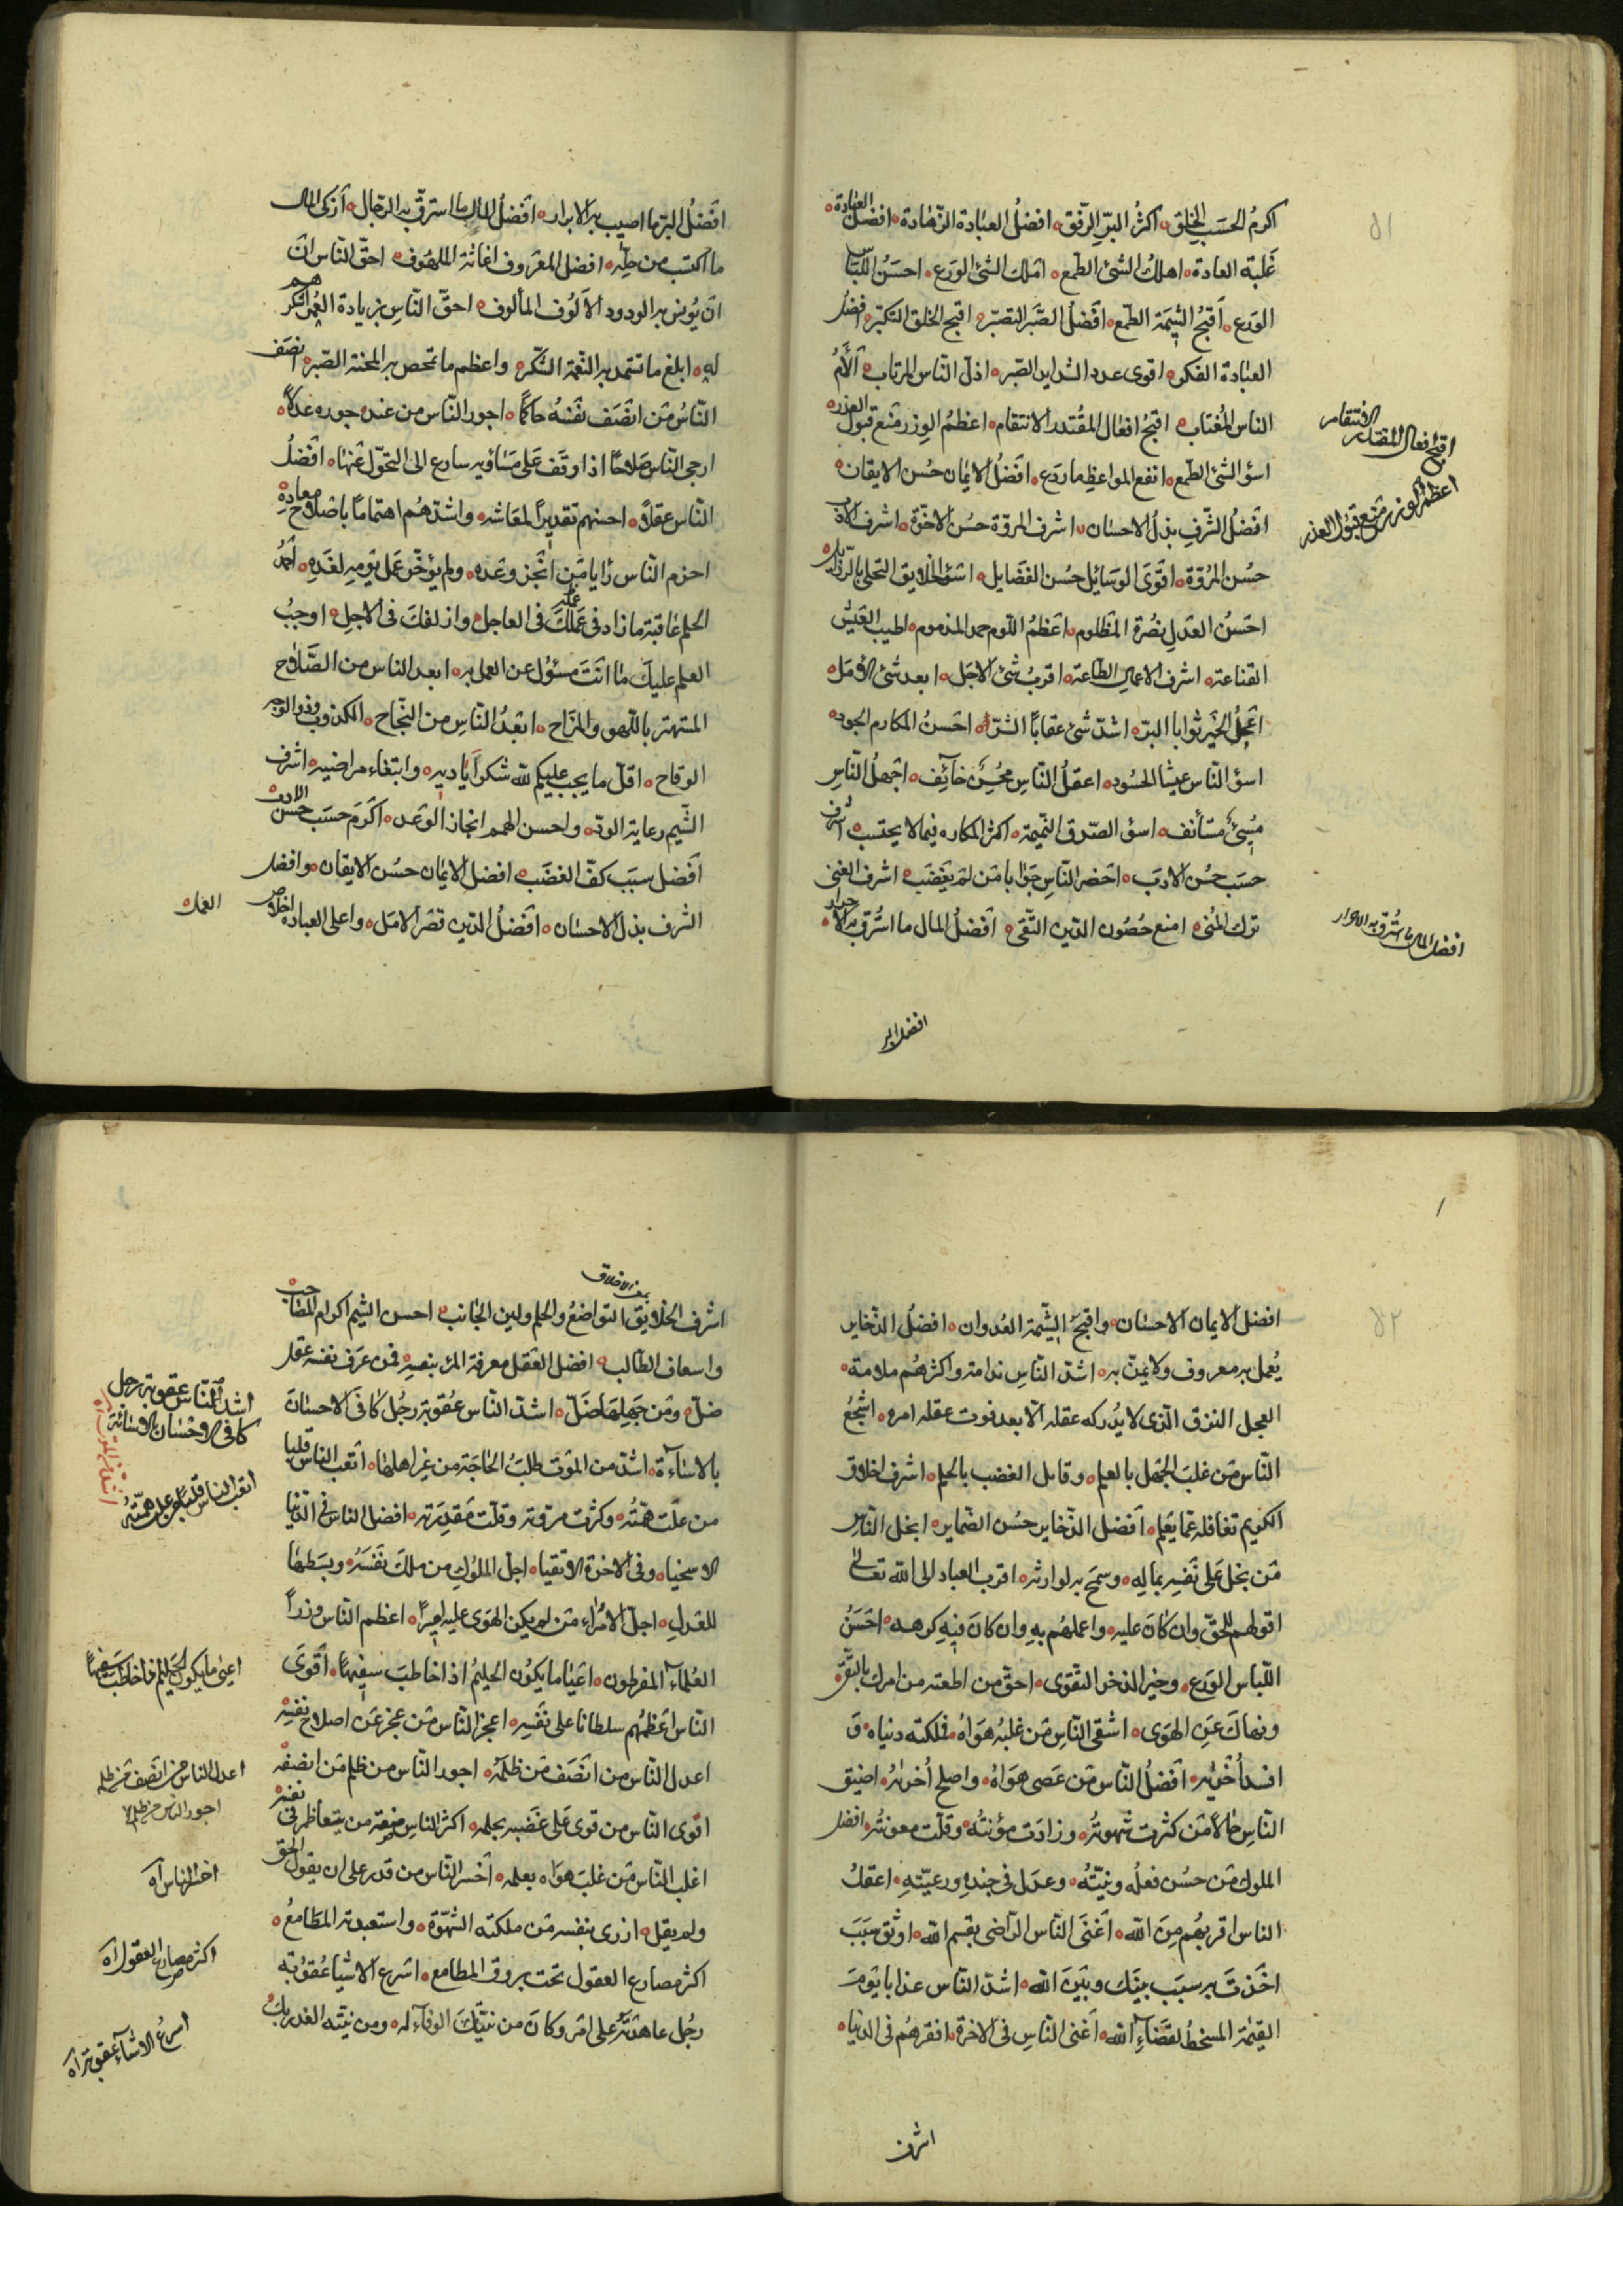 اكرمُ الحسَب الخلق اكثرُ البرّ الرّفق افضلُ العبادة الزّهادة افضل العبادة
غَلبة العادة اهلك الشئ الطمع املك الشئ الورَع احسَنُ اللّباس
الورَع اقبحُ الشيمة الطمع افضلُ الصَّبر التصبّر اقبح الخلق التكبّر افضلُ
العبادة الفكر اقوى عدد الشدايد الصّبر اذلّ النّاس المرتاب ألأمُ
الناس المُغتاب اقبحُ افعال المقُتدر الانتقام اعظمُ الوِزر مَنع قبول العذر
اسؤ الشئ الطّمع انفع المواعظِ ما ردَع افضلُ الايمان حُسن الايقان
افضلُ الشّرفِ بذلُ الاحسَان اشرف المروّة حسُن الاخوّة اشرف الادب
حسُن المرُوّة اقوَى الوسَائل حسُن الفضَايل اسؤ الخلايق التحلى بالرّذايل
احَسنُ العَدل نصُرة المظلوم اعَظمُ اللّوم حمد المذموم اطيب العَيش
القناعة اشرف الاعمال الطّاعة اقربُ شئ الاجَل ابعد شئ الأمَل
اعَجلُ الخَير ثوابا البرّ اشدّ شئ عقابًا الشرّ احَسنُ المكارم الجود
اسؤ النّاس عيشا الحسُود اعقلُ النّاس محُسِن خآئف اجَهلُ النّاسِ
مسُئ مستأنف اسؤ الصّدق النّميمة اكثر المكاره فيما لا يحتسب اشرف
حسَب حسُن الادب احَضر النّاسِ جَوابا مَن لمَ يغَضَب اشرف الغنى
ترك المُنى امنع حُصُون الدّين التّقى افضلُ المال ما استُرّق به الاحرار
اقبح افعال المقتدر الانتقام
اعظم الوزر منع قبول العذر
افضل المال ما استُرقّ به الاحرار
افضل البر
افَضلُ البرّ ما اصيب به الابرار افَضلُ المال ما استرقّ به الرّجال ازكى المال
ما اكتسب من حلّه افضل المعَروف اغاثة الملهُوف احقّ النّاس انَ
انَ يُونس به الودود الاَلوُف المألوف احقّ النّاس بزيادة النعمة اشكرهم
له ابلغ ما تستمد به النّعمة الشّكر واعظم ما تمحص به المحنة الصّبر انصَف
النّاسُ مَن انصَف نَفسهُ حاكمًا اجور النّاس من عند جوره عَدلاً
ارجى النّاس صَلاحًا اذا وقَف عَلى مسَاؤيه سارع الى التحَوّل عَنها افَضلُ
النّاس عقلاً احسنهم تقديرًا لمعَاشه واشدّهمُ اهتمامًا باصَلاح معادِه
احزم النّاس رَايا مَن انجَز وعَده ولم يؤخّر عَمل يَومِه لغَدِه احَمدُ
العلم عَاقبة ما زاد فى عَملك فى العاجل وازلفكَ فى الاجلِ اوجبُ
العلم عليكَ ما انتَ مسَئوُل عن العمل به ابعد الناس من الصَّلاح
المستهتر باللّهو والمزَاح ابعَدُ النّاسِ من النجّاح الكذوب وذو الوَجه
الوقاح اقلّ ما يجب عليكم للّه شكر اَياديه وابتغاء مراضيه اشرف
الشّيم رعاية الودّ واحسن الهمم انجاز الوعَد اكَرَم حسَب حسُن الادب
افَضل سبَب كفّ الغضَب افضل الايمان حسُن الايقان وافضل
الشرف بذل الاحسَان افَضلُ الدّين قصَر الامَل واعلى العبادة اخلاص
العمل
افضل الايمان الاحسان واقبحُ الشّيمة العُدوان افضلُ الذّخاير
يُعمل به معروف ولا يمنّ به اشدّ النّاس ندامة واكثرهُم ملامة
العجل النزق الّذى لا يُدركه عقله الاّ بعد فوت عقله امره اشَجعُ
النّاس مَن غلبَ الجَهل بالعلم وقابل الغضب بالحلم اشرف اخلاق
الكريم تغافله عَمّا يعَلم افَضل الذّخاير حسُن الضّماير ابخل النّاس
مَن بخل عَلى نَفسه بماله وسمَح به لوارثه اقرب العباد الى اللّه تعالى
اقولهم للحَقّ وان كانَ عليه واعملهُم بهِ وان كانَ فيهِ كرهه احَسَنُ
اللّباس الورَع وخير الذخر التقوى احقّ من اطعته من امرك بالتّقى
ونهاكَ عَن الهوَى اشقى النّاس مَن غلبُه هوَاهُ فملكته دنياه وَ
افسدأُخريه افَضلُ النّاس مَن عَصى هوَاهُ واصلح أُخراهُ اضيق
النّاس حالاً مَن كثرت شَهوتُه وزادَت مؤنتُه وقلّت معونتُه افضل
الملوك مَن حسُن فعلُه ونيّتُه وعدَل فى جندِه ورعيّتهِ اعقلُ
الناس اقربهُم مِنَ اللّه اَغنَى النّاس الرّاضى بقسم اللّه اوثق سبَبَ
اخَذتَ به سبَب بينَك وبيَنَ اللّه اشدّ النّاس عذابا يَومَ
القيمة المسخطُ لقضَاءِ اللّه اَغنى النّاسِ فى الاخرة افقرهُم فى الدنيا
اشرف
اشرف الخلايق التواضعُ والحلم ولين الجَانب احسن الشيم اكرام المصَاحب
واسعاف الطالب افضل العَقل معرفة المرء بنفسِه فمن عرَف نفسه عقل
ضلّ ومَن جَهلِها ضَلّ اشدّ النّاس عُقوبة رجُل كافَى الاحسَانَ
بالاساَءة اشدّ من المَوت طلبُ الحَاجة من غير اهلها اتعَب الناس قلبا
من علَت همّتُه وكثرت مروّته وقلّت مقَدرته افضل الناس فى الدّنيا
الاسخياء وفى الاخرة الاتقياء اجلّ الملُوكِ من ملكَ نَفسَهُ وبسَطها
للعَدلِ اجلّ الأمُراء مَن لم يكن الهَوَى عليه اميرًا اعظم النّاس وزراً
العُلماَء المفرطون اعَيا ما يكوُن الحَليمُ اذا خاطَبَ سفيهًا اقَوَى
النّاس اعَظمهُم سلطانا على نَفسِه اعجز النّاس مَن عجزعَن اصلاح نفسِه
اعدل النّاس من انصَف مَن ظلَمَه اجور النّاس من ظلم مَن انصفه
اقوى النّاس من قوى عَلى غَضبه بحلمه اكثر الناس ضعة من يتعاظم فى نفسه
اغلب النّاس مَن غلبَ هوَاه بعلمه اَخسر النّاس من قدر على ان يقول الحق
ولم يقل ازرى بنفسه مَن ملكته الشّهوَة واستعبدته المطَامعُ
اكثر مصارع العقول تحت بروق المطامع اسَرع الاشيا عُقوُبة
رجُل عاهدَتهُ على امَر وكانَ من نيّتكَ الوفآء له ومن نيّته الغدر بكَ
اشدّ النّاس عقوبة رجل
كافى الاحسَان بالاسَائة
اتعَب النّاس قلبا من علت همّتُه
اعيى ما يكون الحَليم اذا خاطبَ سَفيهًا
اعدل الناس من انصَف من ظلمه
اجور الناس من ظلم
اخسر الناس اه
اكثر مصارع العقول اه
اسرعُ الاشيآء عقوبة اه